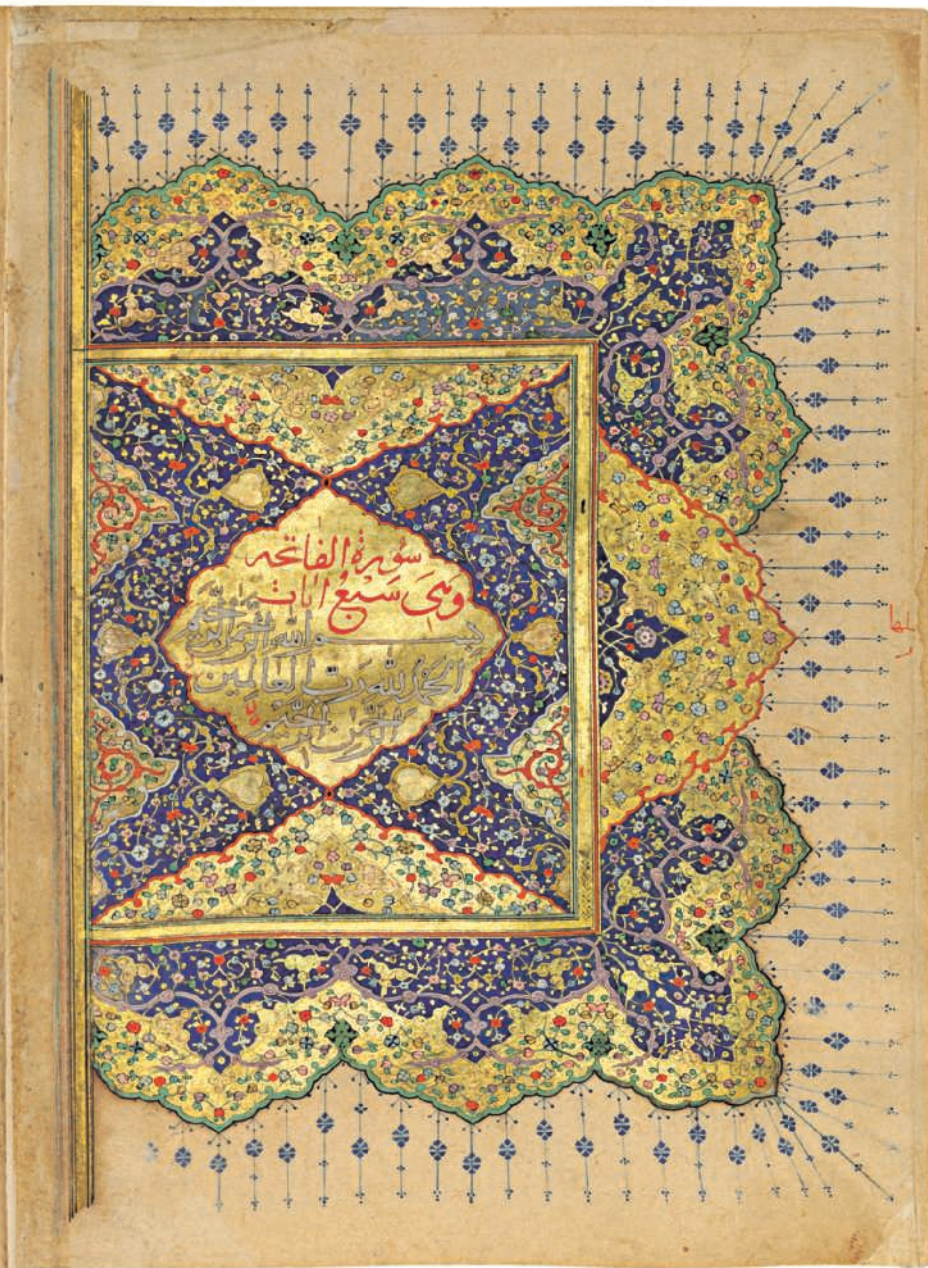 سورة الفاتحه
وهي سبع ايات
بسم الله الرحمن الرحيم
الحمد لله رب العالمين
الرحمن الرحيم